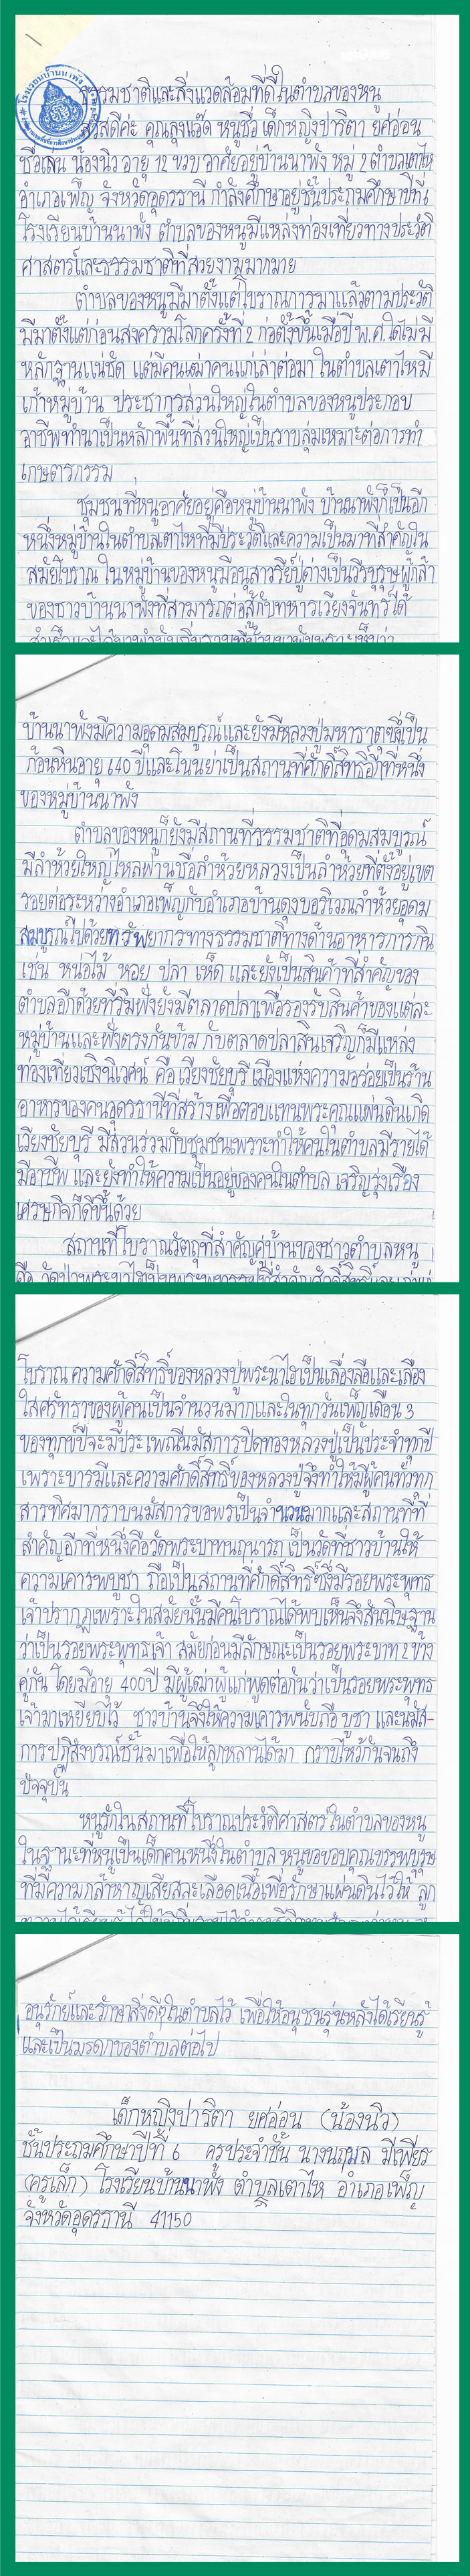 ธรรมชาติและสิ่งแวดล้อมที่ดีในตำบลของหนู
สวัสดีค่ะ คุณลุงแอ๊ด หนูชื่อ เด็กหญิงปาริตา ยศอ่อน
ชื่อเล่น น้องนิว อายุ 12 ขวบ อาศัยอยู่บ้านนาพัง หมู่ 2 ตำบลเตาไห
อำเภอเพ็ญ จังหวัดอุดรธานี กำลังศึกษาอยู่ชั้นประถมศึกษาปีที่ 6
โรงเรียนบ้านนาพัง ตำบลของหนูมีแหล่งท่องเที่ยวทางประวัติ
ศาสตร์และธรรมชาติที่สวยงามมากมาย
ตำบลของหนูมีมาตั้งแต่โบราณการมาแล้วตามประวัติ
มีมาตั้งแต่ก่อนสงครามโลกครั้งที่ 2 ก่อตั้งขึ้นเมื่อปี พ.ศ.ใดไม่มี
หลักฐานแน่ชัด แต่มีคนเฒ่าคนแก่เล่าต่อมา ในตำบลเตาไหมี
เก้าหมู่บ้าน ประชากรส่วนใหญ่ในตำบลของหนูประกอบ
อาชีพทำนาเป็นหลักพื้นที่ส่วนใหญ่เป็นราบลุ่มเหมาะต่อการทำ
เกษตรกรรม
ชุมชนที่หนูอาศัยอยู่คือหมู่บ้านนาพัง บ้านนาพังก็เป็นอีก
หนึ่งหมู่บ้านในตำบลเตาไหที่มีประวัติและความเป็นมาที่สำคัญใน
สมัยโบราณ ในหมู่บ้านของหนูมีอนุสาวรีย์ปู่ด่างเป็นวีรบุรุษผู้กล้า
ของชาวบ้านนาพังที่สามารถต่อสู้กับทหารเวียงจันทร์ได้
บ้านนาพังมีความอุดมสมบูรณ์และยังมีหลวงปู่มหาธาตุซึ่งเป็น
ก้อนหินอายุ 640 ปีและโนนย่าเป็นสถานที่ศักดิ์สิทธิ์อีกที่หนึ่ง
ของหมู่บ้านนาพัง
ตำบลของหนูก็ยังมีสถานที่ธรรมชาติที่อุดมสมบูรณ์
มีลำห้วยใหญ่ไหลผ่านชื่อลำห้วยหลวงเป็นลำห้วยที่ตั้งอยู่เขต
รอยต่อระหว่างอำเภอเพ็ญกับอำเภอบ้านดุงบอริเวณลำห้วยอุดม
สมบูรณ์ไปด้วยทรัพยากรทางธรรมชาติทางด้านอาหารการกิน
เช่น หน่อไม้ หอย ปลา เห็ด และยังเป็นสินค้าที่สำคัญของ
ตำบลอีกด้วยที่ริมฝั่งยังมีตลาดปลาเพื่อรองรับสินค้าของแต่ละ
หมู่บ้านและฝั่งตรงกันข้าม กับตลาดปลาสินเจริญก็มีแหล่ง
ท่องเที่ยวเชิงนิเวศน์ คือ เวียงชัยบุรี เมืองแห่งความอร่อยเป็นร้าน
อาหารของคนอุดรธานีที่สร้างเพื่อตอบแทนพระคุณแผ่นดินเกิด
เวียงชัยบุรี มีส่วนร่วมกับชุมชนเพราะทำให้คนในตำบลมีรายได้
มีอาชีพ และยังทำให้ความเป็นอยู่ของคนในตำบล เจริญรุ่งเรือง
เศรษกิจก็ดีขึ้นด้วย
สถานที่โบราณวัตถุที่สำคัญคู่บ้านของชาวตำบลหนู
โบราณ ความศักดิ์สิทธิ์ของหลวงปู่พระนาไฮเป็นเลื่องลือและเลื่อง
ใสศรัทธาของผู้คนเป็นจำนวนมากและในทุกวันเพ็ญเดือน 3
ของทุกๆปีจะมีประเพณีนมัสการปิดทองหลวงปู่เป็นประจำทุกปี
เพราะบารมีและความศักดิ์สิทธิ์ของหลวงปู่จึงทำให้มีผู้คนทั่วทุก
สารทิศมากราบนมัสการขอพรเป็นจำนวนมากและสถานที่ที่
สำคัญอีกที่หนึ่งคือวัดพระบาทนฤนารถ เป็นวัดที่ชาวบ้านให้
ความเคารพบูชา ถือเป็นสถานที่ศักดิ์สิทธิ์ซึ่งมีรอยพระพุทธ
เจ้าปรากฏเพราะในสมัยนั้นมีคนโบราณได้พบเห็นจึงสันนิษฐาน
ว่าเป็นรอยพระพุทธเจ้า สมัยก่อนมีลักษณะเป็นรอยพระบาท 2 ข้าง
คู่กัน โดยมีอายุ 400 ปี มีผู้เฒ่าผู้แก่พูดต่อกันว่าเป็นรอยพระพุทธ
เจ้ามาเหยียบไว้ ชาวบ้านจึงให้ความเคารพนับถือ บูชา และนมัส-
การ ปฏิสังขรณ์ขึ้นมาเพื่อให้ลูกหลานได้มา กราบไหว้กันจนถึง
ปัจจุบัน
หนูรักในสถานที่โบราณประวัติศาสตร์ในตำบลของหนู
ในฐานะที่หนูเป็นเด็กคนหนึ่งในตำบล หนูขอขอบคุณบรรพบุรุษ
ที่มีความกล้าหาญเสียสละเลือดเนื้อเพื่อรักษาแผ่นดินไว้ให้ ลูก
อนุรักย์และรักษาสิ่งดีๆในตำบลไว้ เพื่อให้อนุชนรุ่นหลังได้เรียนรู้
และเป็นมรดกของตำบลต่อไป
เด็กหญิงปาริตา ยศอ่อน (น้องนิว)
ชั้นประถมศึกษาปีที่ 6 ครูประจำชั้น นางนฤมล มีเพียร
(ครูเล็ก) โรงเรียนบ้านนาพัง ตำบลเตาไห อำเภอเพ็ญ
จังหวัดอุดรธานี 41150